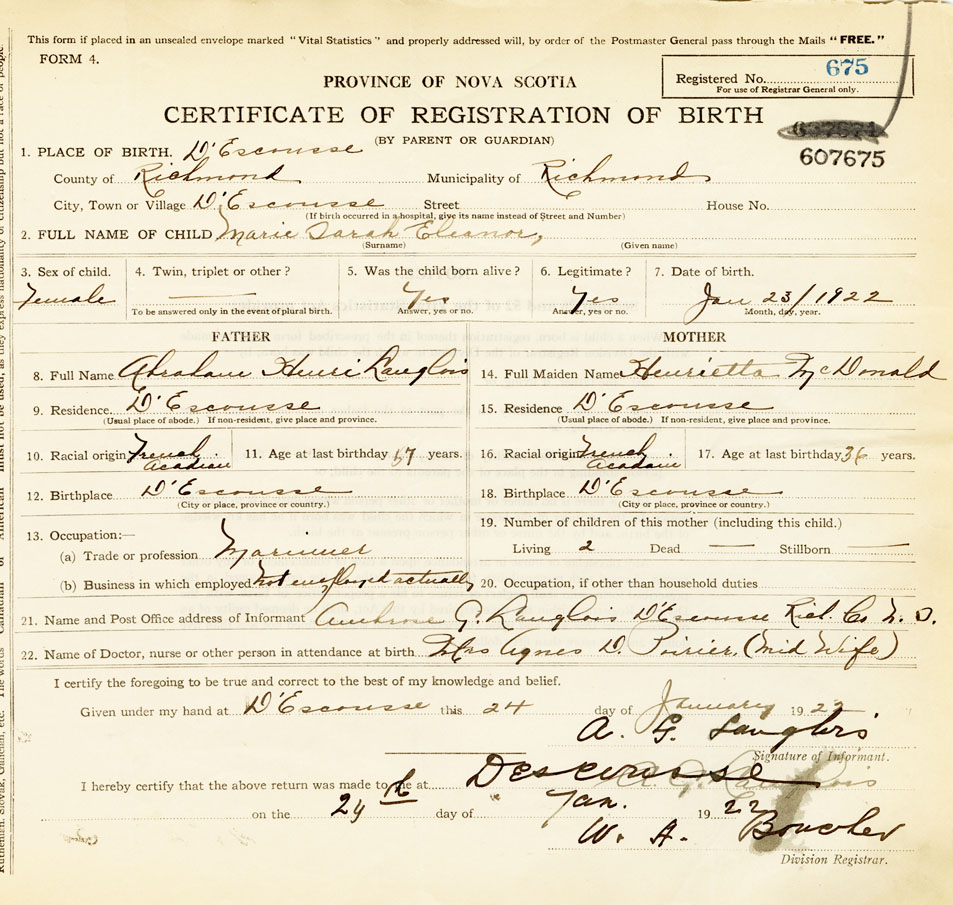 This form if placed in an unsealed envelope marked "Vital Statistics" and properly addressed will, by order of the Postmaster General pass through the Mails "FREE."
FORM 4.
Registered No. 675
For use of Registrar General only.
PROVINCE OF NOVA SCOTIA
CERTIFICATE OF REGISTRATION OF BIRTH
(BY PARENT OR GUARDIAN)
607675
1. PLACE OF BIRTH. D'Escousse
County of Richmond Municipality of Richmond
City, Town or Village D'Escousse Street House No.
(If birth occurred in a hospital, give its name instead of Street and Number)
2. FULL NAME OF CHILD Marie Sarah Eleanor,
(Surname) (Given name)
3. Sex of child. 4. Twin, triplet or other? 5. Was the child born alive? 6. Legitimate? 7. Date of birth.
Female — Yes Yes Jan 23/1922
To be answered only in the event of plural birth. Answer, yes or no. Answer, yes or no. Month, day, year.
FATHER MOTHER
8. Full Name Abraham Henri Langlois 14. Full Maiden Name Henrietta McDonald
9. Residence. D'Escousse 15. Residence D'Escousse
(Usual place of abode.) If non-resident, give place and province. (Usual place of abode.) If non-resident, give place and province.
10. Racial origin French Acadian 11. Age at last birthday 57 years. 16. Racial origin French Acadian 17. Age at last birthday 36 years.
12. Birthplace D'Escousse 18. Birthplace D'Escousse
(City or place, province or country.) (City or place, province or country.)
13. Occupation:— 19. Number of children of this mother (including this child.)
(a) Trade or profession Mariner Living 2 Dead — Stillborn —
(b) Business in which employed Not employed actually 20. Occupation, if other than household duties
21. Name and Post Office address of Informant Ambrose G. Langlois D'Escousse Rich. Co N.S.
22. Name of Doctor, nurse or other person in attendance at birth Mrs Agnes D. Poirier. (Mid Wife)
I certify the foregoing to be true and correct to the best of my knowledge and belief.
Given under my hand at D'Escousse this 24 day of January 1922
A. G. Langlois
Signature of Informant.
I hereby certify that the above return was made to me at Descousse
on the 24th day of Jan. 1922
W. A. Boucher
Division Registrar.